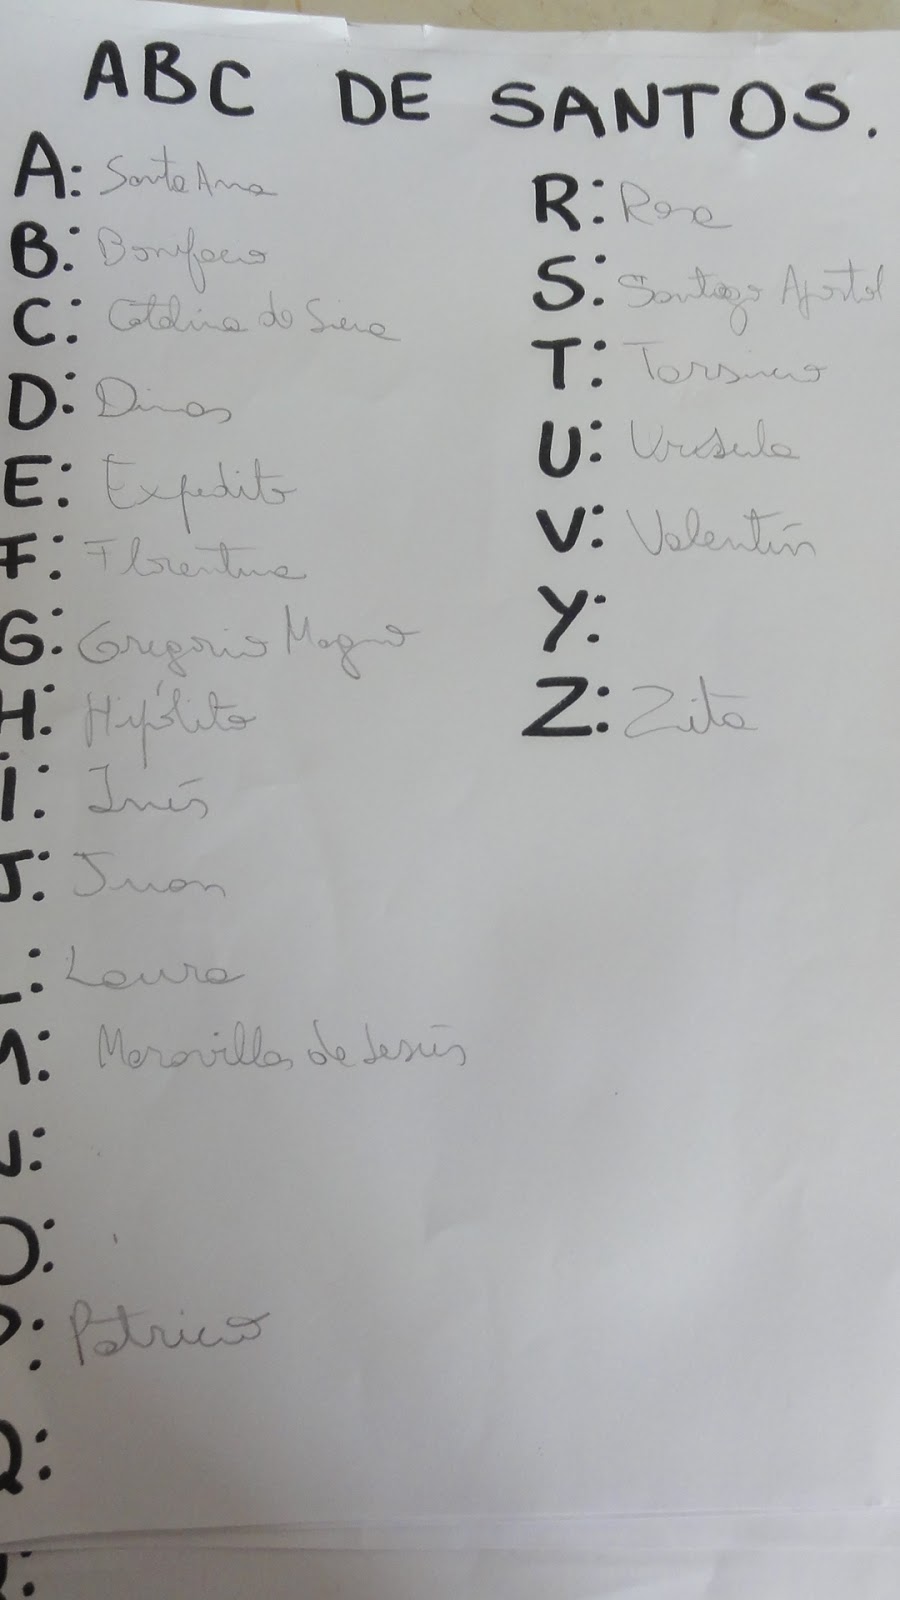 ABC DE SANTOS.
A: Santa Ana
B: Bonifacio
C: Catalina de Siena
D: Dimas
E: Expedito
F: Florentina
G: Gregorio Magno
H: Hipólito
I: Inés
J: Juan
L: Laura
M: Maravillas de Jesús
N:
O:
P: Patricio
Q:
R: Rosa
S: Santiago Apostol
T: Tarsicio
U: Urssula
V: Valentín
Y:
Z: Zita